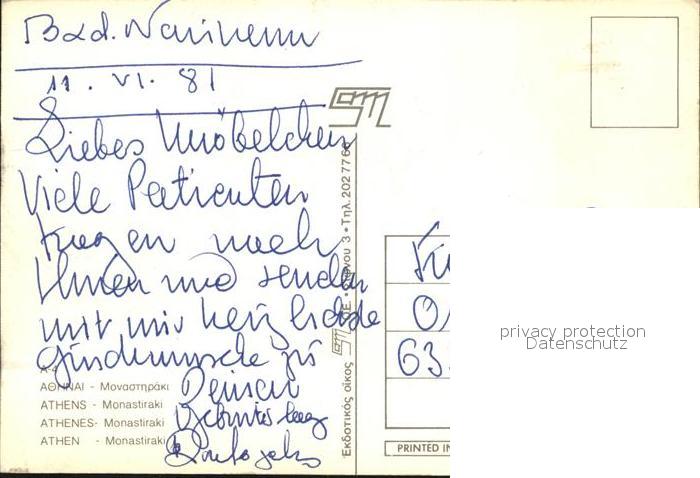 Bad. Nauheim
11. VI. 81
Liebes Knöbelchen
Viele Patienten
fragen nach
Ihnen und senden
mit mir herzlichste
Glückwünsche zu
Deinem
Geburtstag
Εκδοτικός οίκος
3 • Τηλ. 20277
ΑΘΗΝΑΙ - Μοναστηράκι
ATHENS - Monastiraki
ATHENES - Monastiraki
ATHEN - Monastiraki
63
PRINTED IN
privacy protection
Datenschutz